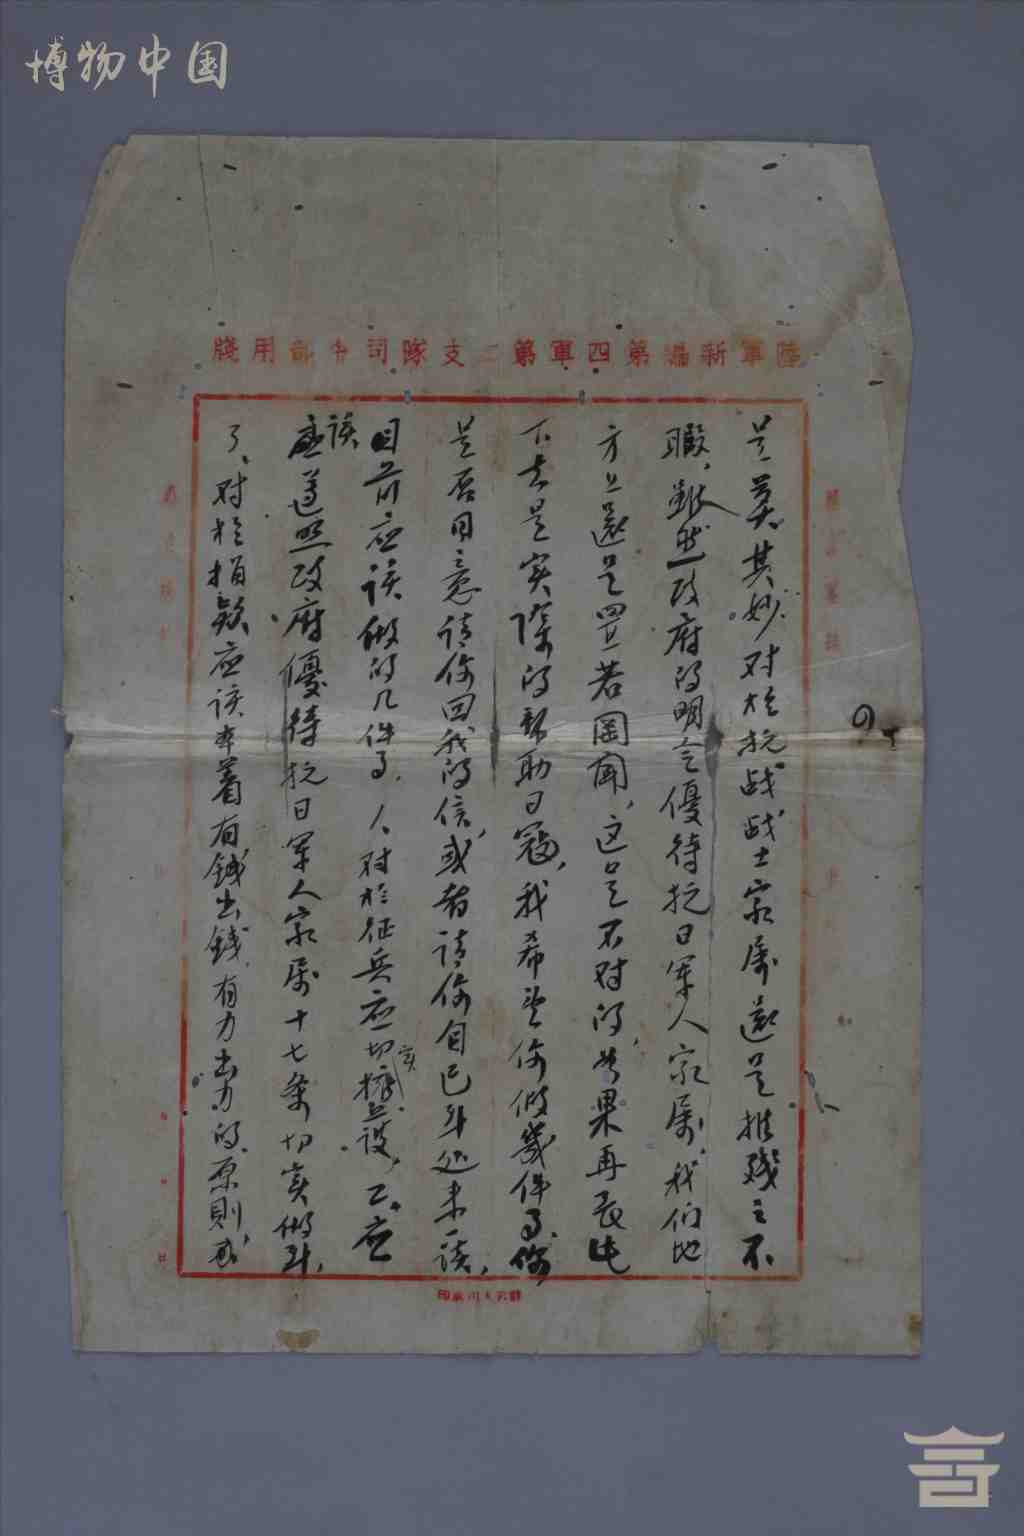 博物中国
陸軍新編第四軍第二支隊司令部用牋
是莫其妙。对於抗战战士家属還是推残之不
暇，雖然政府的明令優待抗日军人家属，我们地
方上還是置若罔闻，这是不对的，如果再長此
下去是实际的帮助日寇，我希望你做幾件事，你
是否同意请你回我的信，或者请你自己到处来一谈，
目前应该做的几件事，人对於征兵应切实
应该遵照政府優待抗日军人家属十七条切实做到，
了、对於捐款应该本着有錢出錢，有力出力的原則，